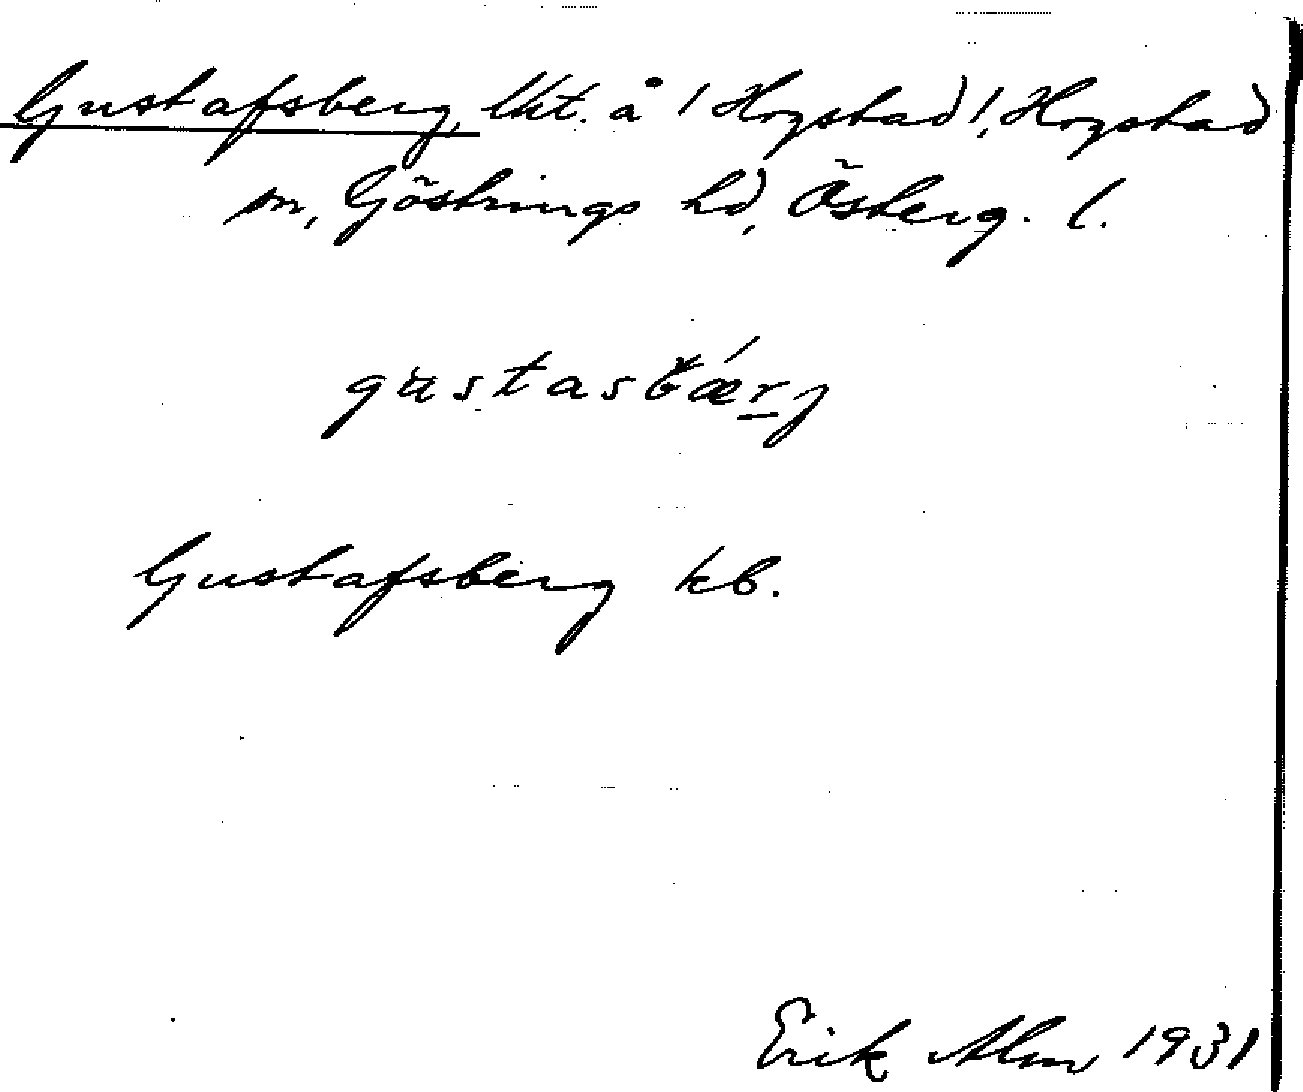 Gustafsberg, lht. å /Hogstad/, Hogstad
sn, Göstrings hd, Österg. l.
gustasbærj
Gustafsberg kb.
Erik Alm 1931